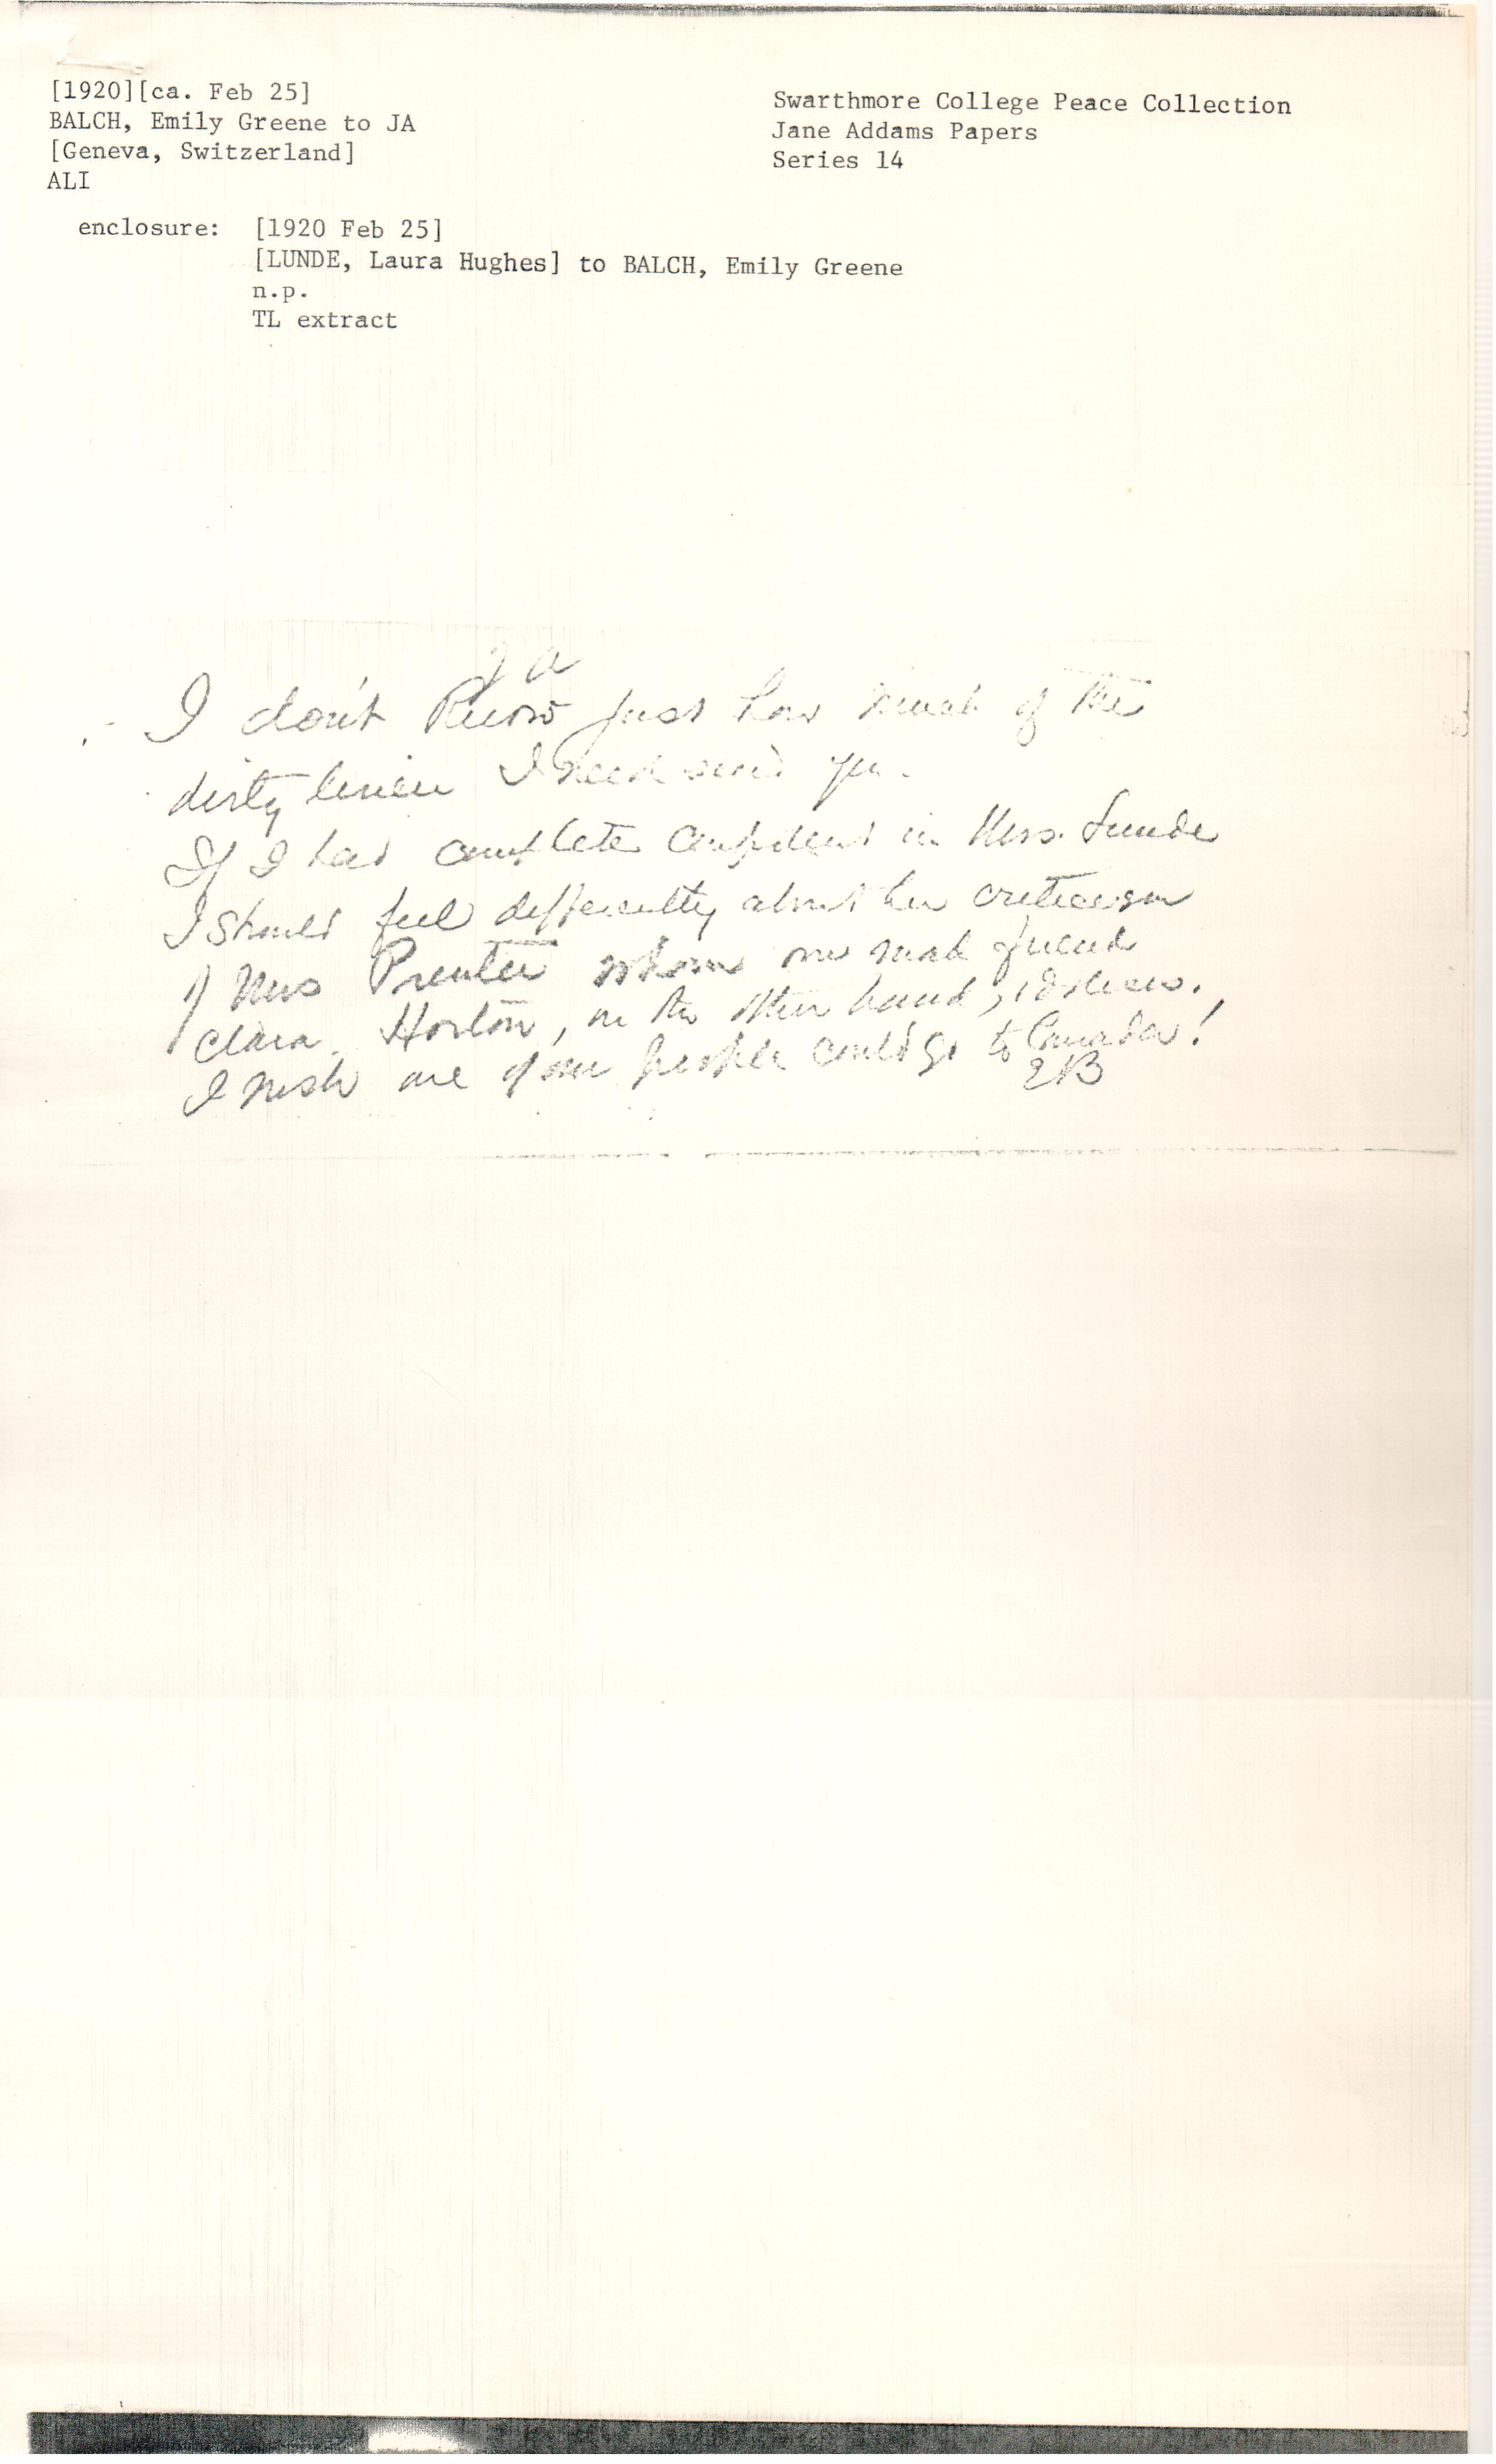 [1920][ca. Feb 25]
BALCH, Emily Greene to JA
[Geneva, Switzerland]
ALI
enclosure: [1920 Feb 25]
[LUNDE, Laura Hughes] to BALCH, Emily Greene
n.p.
TL extract
Swarthmore College Peace Collection
Jane Addams Papers
Series 14
J A
I don't know just how much of the
dirty linen I need send you.
If I had complete in Mrs. Lunde
I should feel differently about her criticism
of Mrs Prenter whom our friend
Clara Horton, on the other hand,
I wish one of our people could go to Canada!
EB